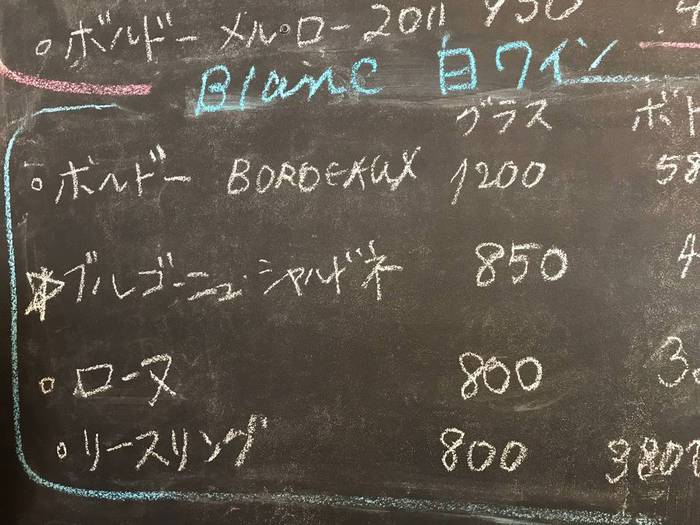 ボルドー メルロー 2011 950
Blanc 白ワイン
グラス
ボルドー BORDEAUX 1200
ブルゴーニュ・シャルドネ 850
ローヌ 800
リースリング 800